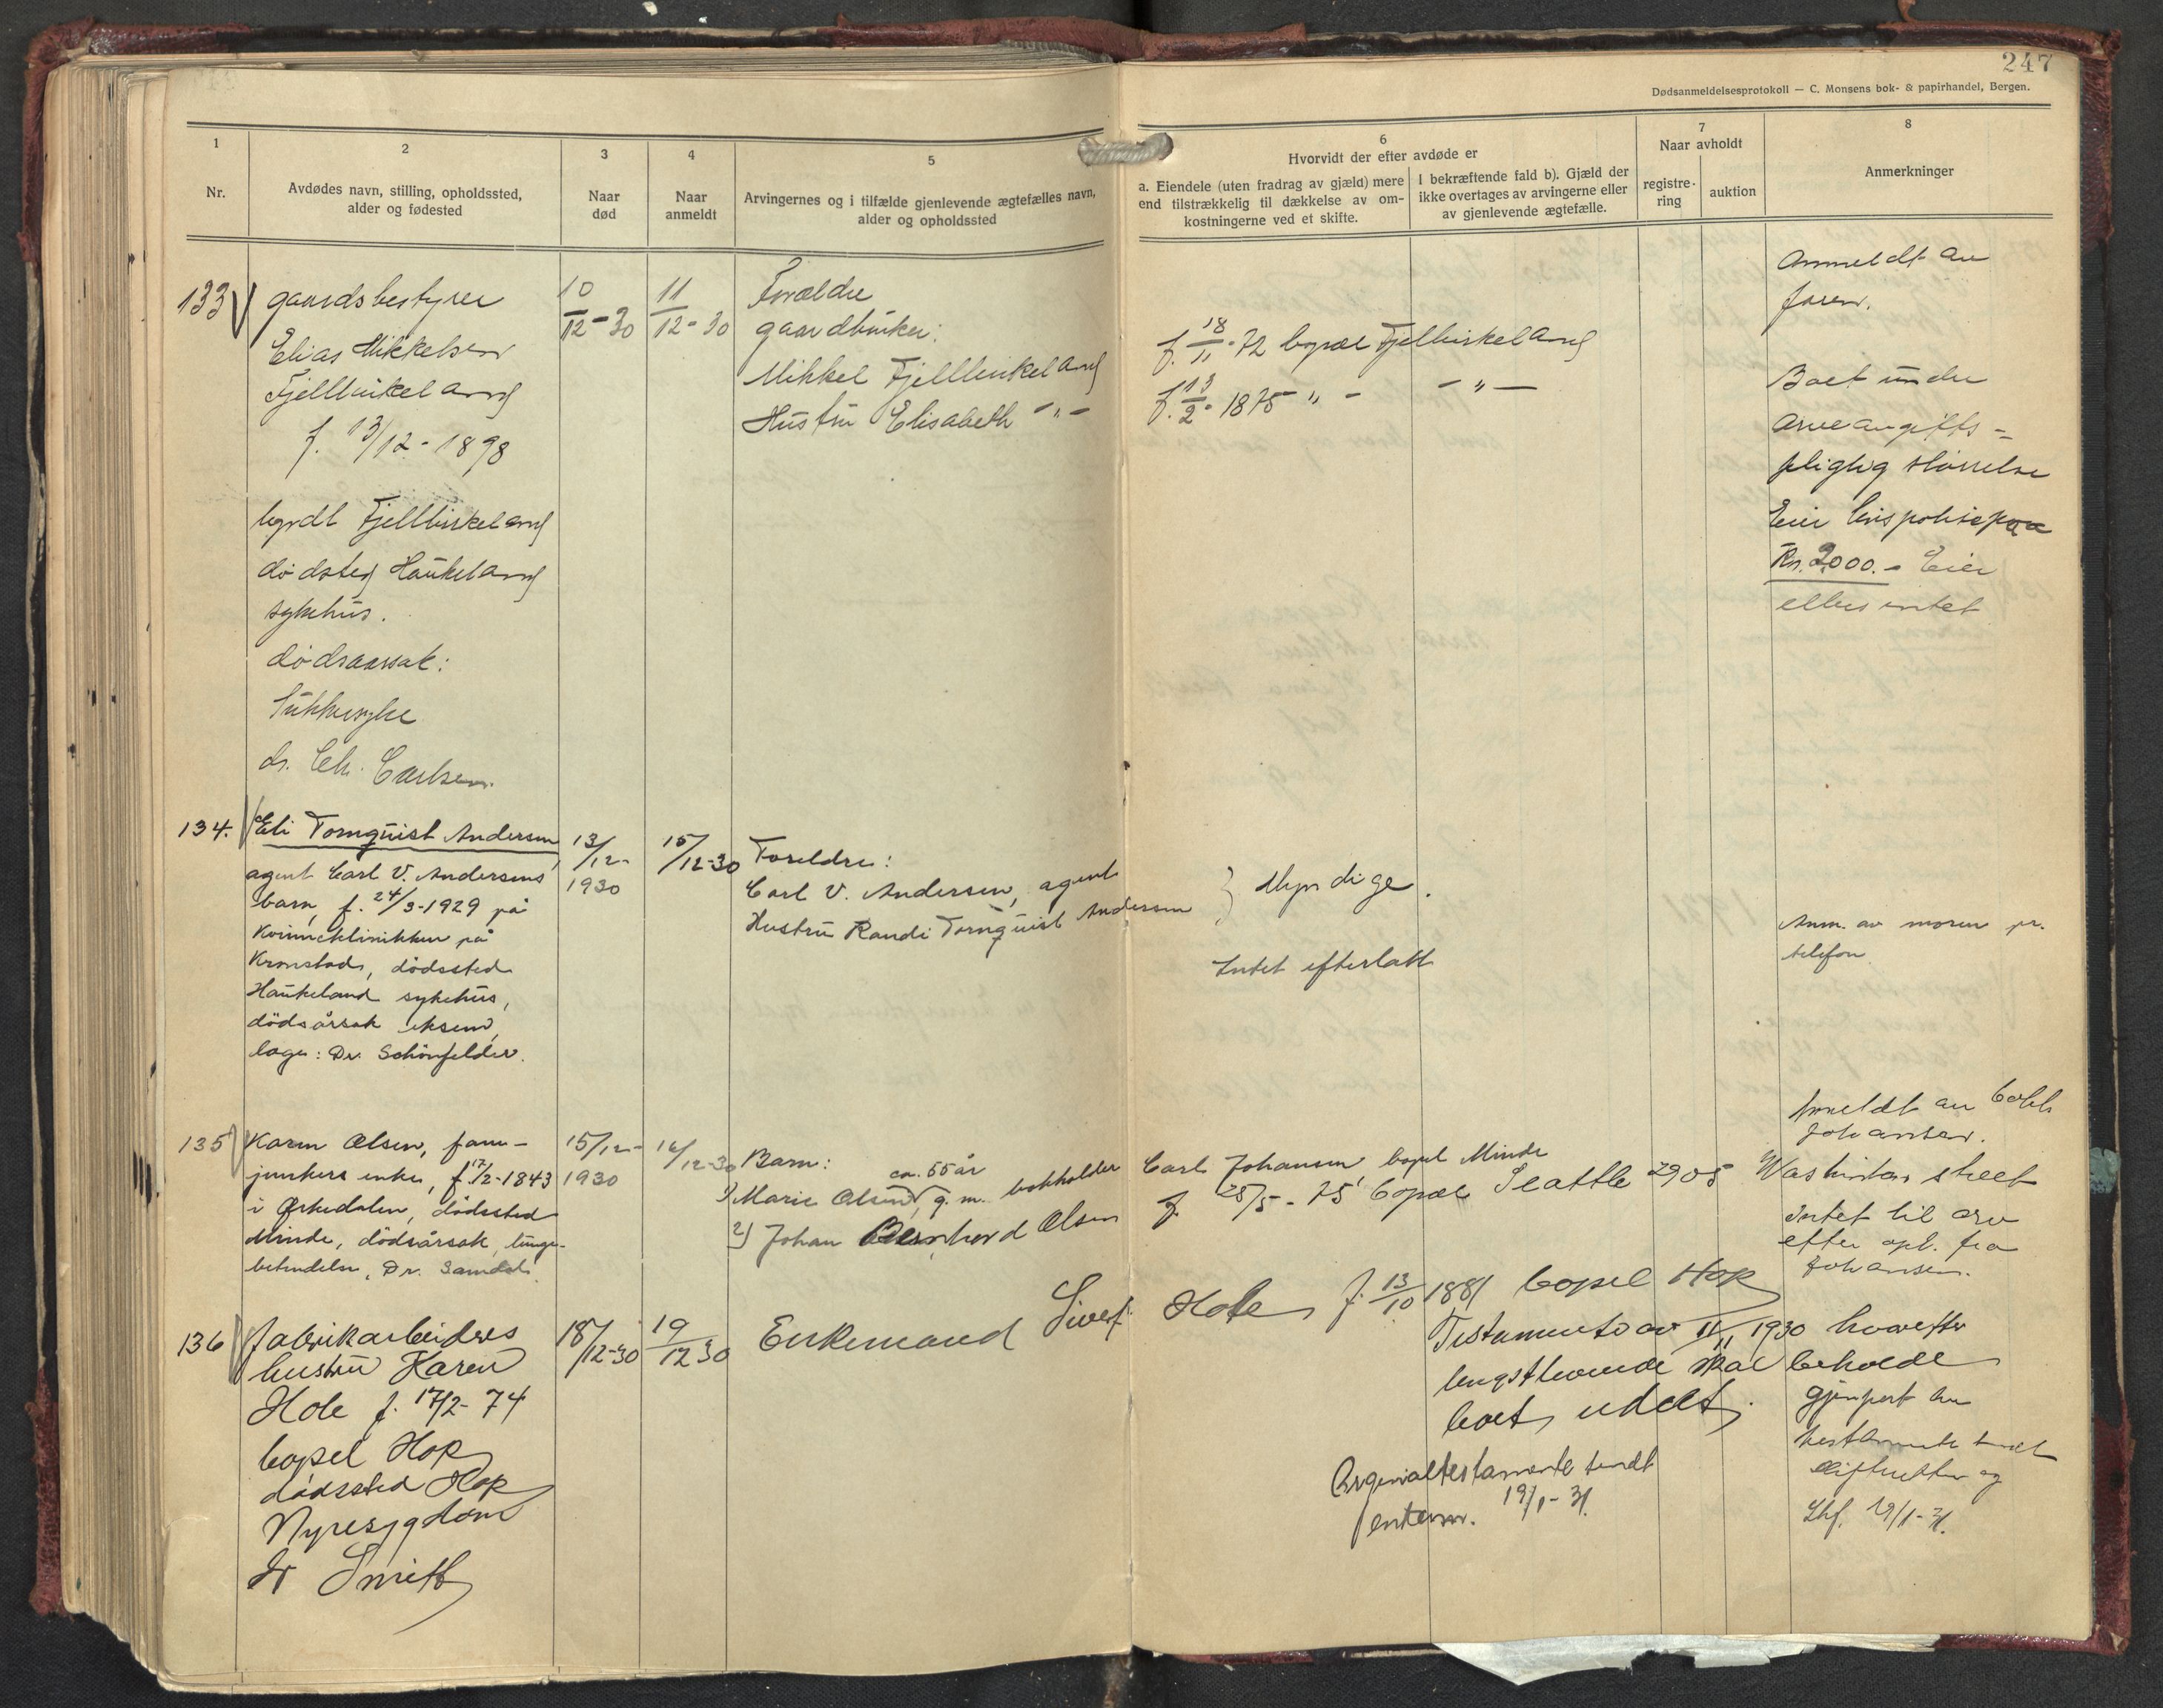 247
Dødsanmeldelsesprotokoll — C. Monsens bok- & papirhandel, Bergen.
1
Nr.
2
Avdødes navn, stilling, opholdssted,
alder og fødested
3
Naar
død
4
Naar
anmeldt
5
Arvingernes og i tilfælde gjenlevende ægtefælles navn,
alder og opholdssted
6
Hvorvidt der efter avdøde er
a. Eiendele (uten fradrag av gjæld) mere
end tilstrækkelig til dækkelse av om-
kostningerne ved et skifte.
I bekræftende fald b). Gjæld der
ikke overtages av arvingerne eller
av gjenlevende ægtefælle.
7
Naar avholdt
registre-
ring
auktion
8
Anmerkninger
133
gaardsbestyrer
Elias Mikkelsen
Fjellbirkeland
f. 13/12-1898
bopæl Fjellbirkeland
dødsted Haukeland
sykehus.
dødsaarsak:
Sukkersyke
dr. Chr. Carlsen.
10/12-30
11/12-30
Forældre
gaardbruker:
Mikkel Fjellbirkeland
f. 18/11-72 bopæl Fjellbirkeland
Hustru Elisabeth -"-
f. 13/2-1875 " - -"-
Anmeldt av
faren.
Boet under
arveavgifts-
pligtig størrelse
Eier livspolise paa
Kr. 2000.- Eier
ellers intet
134.
Eli Tornquist Andersen
agent Carl V. Andersens
barn, f. 24/3-1929 på
Kvinneklinikken på
Kronstad, dödssted
Haukeland sykehus,
dödsårsak eksem,
læge: Dr. Schönfelder.
13/12-
1930
15/12-30
Foreldre:
Carl V. Andersen, agent
Hustru Randi Tornquist Andersen
} Myndige.
Intet efterlatt
Anm. av moren pr.
telefon
135
Karen Olsen, fane-
junkers enke, f. 17/2-1843
i Orkedalen, dödssted
Minde, dödsårsak lunge-
betendelse, Dr. Samdal.
15/12-
1930
16/12-30
Barn:
ca. 55 år
1) Marie Olsen, g.m. bokholder Carl Johansen bopel Minde
2) Johan Bernhard Olsen f. 25/5-75 bopæl Seattle 2905 Washinton street
Anmeldt av Carl
Johansen.
Intet til arv
efter opl. fra
Johansen.
136
fabrikarbeiders
hustru Karen
Hole f. 17/2-74
bopel Hop
dødssted Hop
Nyresygdom
dr Smith
18/12-30
19/12 30
Enkemand Sivert Hole f. 13/10 1881 bopel Hop
Testamente av 11/11 1930 hvorefter
lengstlevende skal beholde
boet udelt.
Orginaltestamente sendt
19/1-31.
Gjenpart av
testamente sendt
skifteretten og
19/1-31.